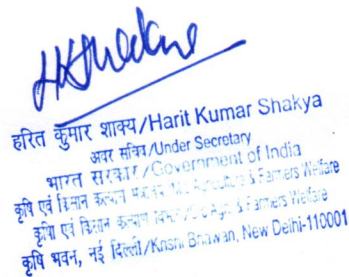 हरित कुमार शाक्य/Harit Kumar Shakya
अवर सचिव/Under Secretary
भारत सरकार/Government of India
कृषि एवं किसान कल्याण Agriculture & Farmers Welfare
कृषि एवं किसान कल्याण & Farmers Welfare
कृषि भवन, नई दिल्ली/Krishi Bhawan, New Delhi-110001